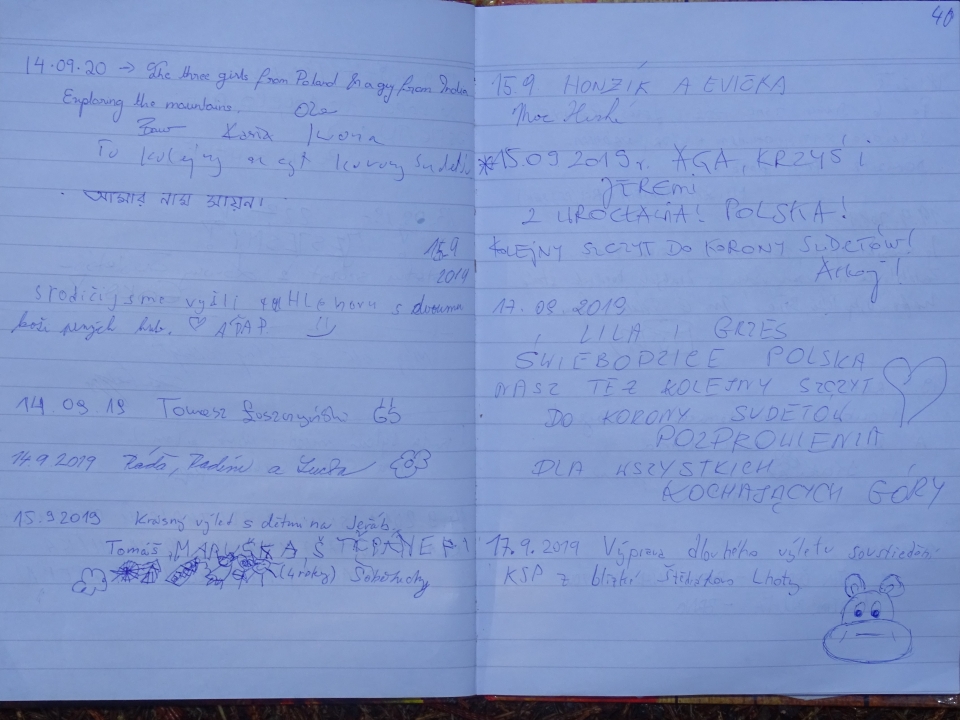 14.09.20 → The three girls from Poland & a guy from India
Exploring the mountains. Ola
Kasia Iwona
Tu kolejny szczyt Korony Sudetów
আমার নাম আয়ন।
15.9
2019
jsme vyšli horu s dvouma
hub. ♡ ADAP
14.09.19 Tomasz
14.9.2019 Radim a
15.9.2019 Krásný výlet s dětmi na Jeřáb.
Tomáš, MARUŠKA, ŠTĚPÁNEK
(4 roky)
40
15.9 HONZÍK A EVIČKA
Moc Hezké
*15.09.2019r. AGA, KRZYŚ i
JEREMI
Z WROCŁAWIA! POLSKA!
KOLEJNY SZCZYT DO KORONY SUDETÓW!
Ahoj!
17.09.2019
LILA I GRZEŚ
ŚWIEBODZICE POLSKA
NASZ TEŻ KOLEJNY SZCZYT
DO KORONY SUDETÓW
POZDROWIENIA
DLA WSZYSTKICH
KOCHAJĄCYCH GÓRY
17.9.2019 Výprava dlouhého výletu soustředění
KSP z blízké Lhoty